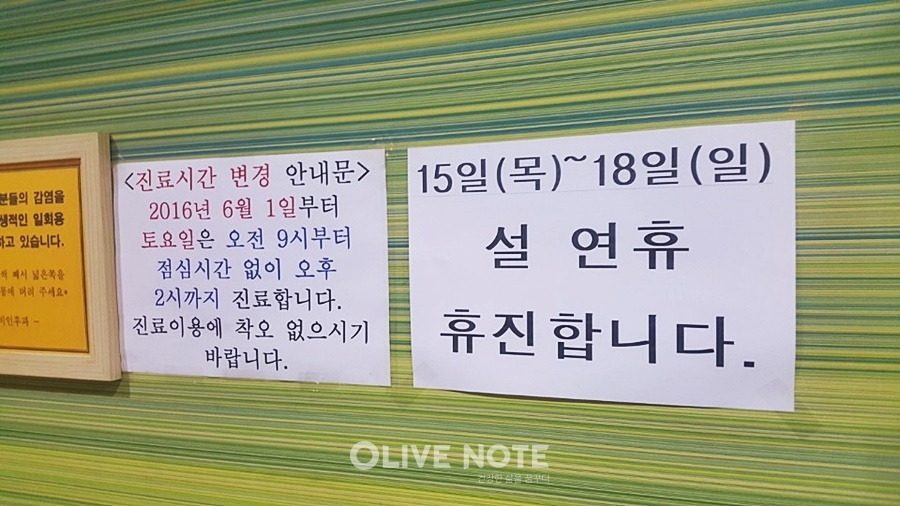 분들의 감염을
생적인 일회용
하고 있습니다.
히 빼서 넓은쪽을
통에 버려 주세요*
비인후과 -
<진료시간 변경 안내문>
2016년 6월 1일부터
토요일은 오전 9시부터
점심시간 없이 오후
2시까지 진료합니다.
진료이용에 착오 없으시기
바랍니다.
15일(목)~18일(일)
설 연휴
휴진합니다.
OLIVE NOTE
건강한 삶을 꿈꾸다